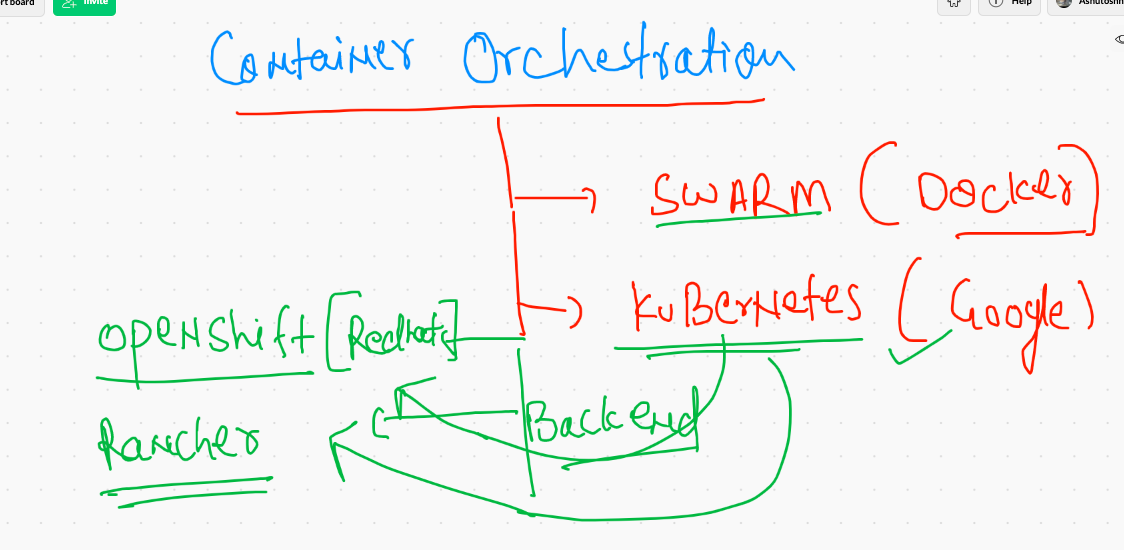 rt board Invite Help Ashutosh
Container Orchestration
SWARM (Docker)
KuBerNetes (Google)
OpenShift [Redhat]
Backend
Rancher